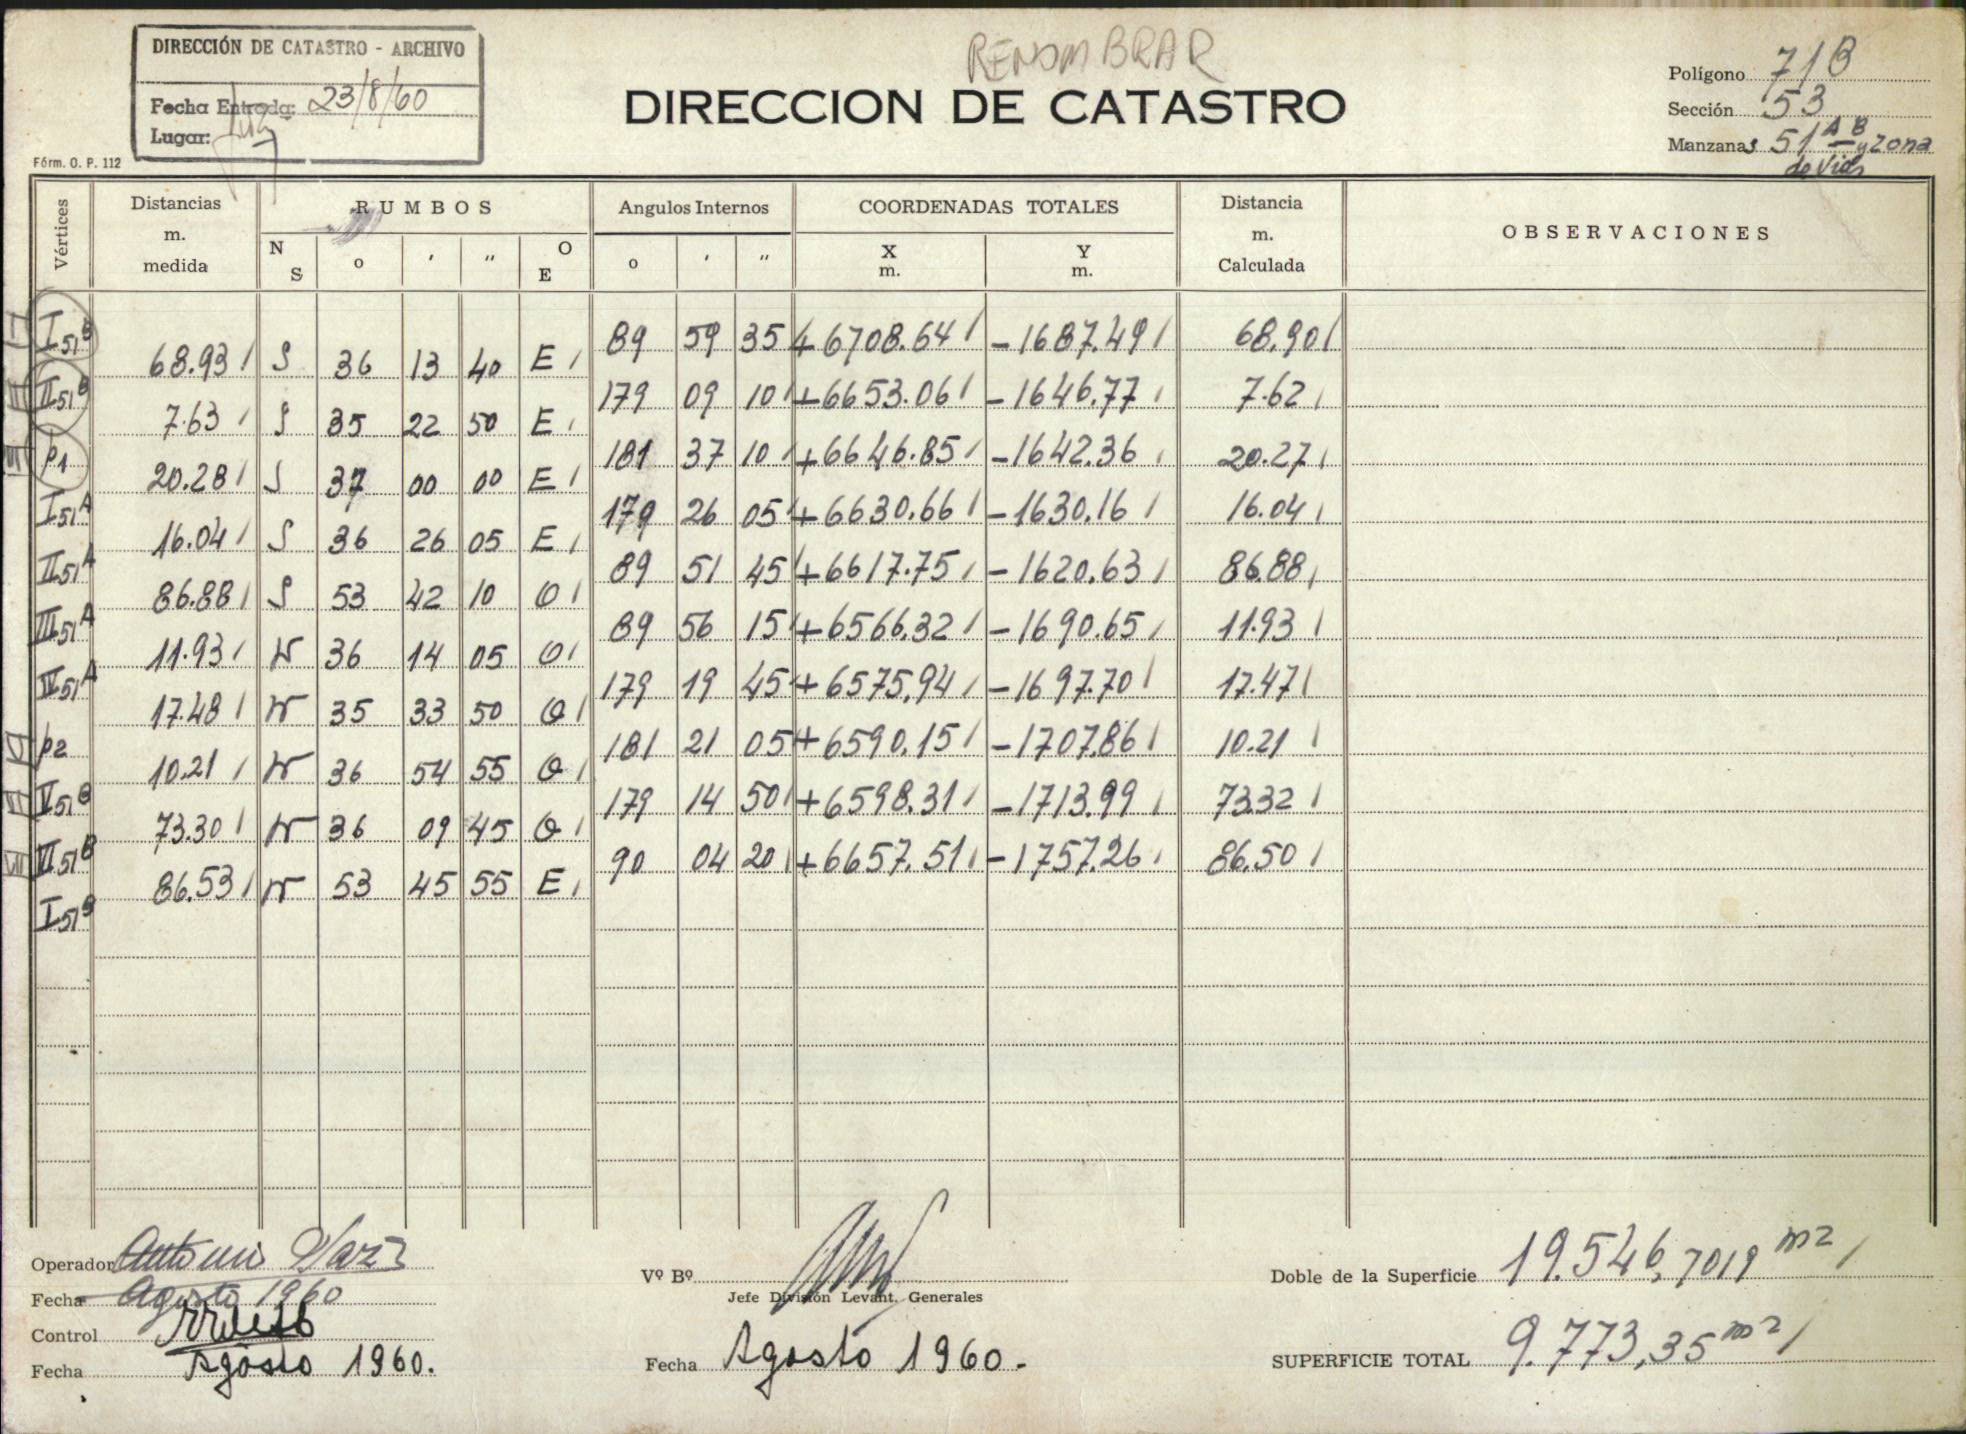 RENOMBRAR
DIRECCIÓN DE CATASTRO - ARCHIVO
Fecha Entrada: 23/8/60
Lugar:
Fórm. O. P. 112
DIRECCION DE CATASTRO
Polígono 71B
Sección 53
Manzanas 51 A B y zona
de vías
Vértices Distancias m. medida RUMBOS Angulos Internos COORDENADAS TOTALES Distancia m. Calculada OBSERVACIONES
N S o ' " O E o ' " X m. Y m.
I51B 89 59 35 +6708.64 -1687.49 68.90
68.93 S 36 13 40 E
II51B 179 09 10 +6653.06 -1646.77 7.62
7.63 S 35 22 50 E
p1 181 37 10 +6646.85 -1642.36 20.27
20.28 S 37 00 00 E
I51A 179 26 05 +6630.66 -1630.16 16.04
16.04 S 36 26 05 E
II51A 89 51 45 +6617.75 -1620.63 86.88
86.88 S 53 42 10 O
III51A 89 56 15 +6566.32 -1690.65 11.93
11.93 N 36 14 05 O
IV51A 179 19 45 +6575.94 -1697.70 17.47
17.48 N 35 33 50 O
p2 181 21 05 +6590.15 -1707.86 10.21
10.21 N 36 54 55 O
V51B 179 14 50 +6598.31 -1713.99 73.32
73.30 N 36 09 45 O
VI51B 90 04 20 +6657.51 -1757.26 86.50
86.53 N 53 45 55 E
I51B
Operador Antonio
Fecha Agosto 1960
Control
Fecha Agosto 1960.
Vº Bº
Jefe División Levant. Generales
Fecha Agosto 1960.-
Doble de la Superficie 19.546,7019 m2
SUPERFICIE TOTAL 9.773,35 m2